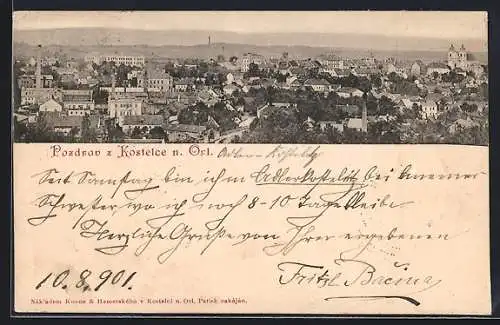 Pozdrav z Kostelce n. Orl. Adler-Kosteletz
Seit Samstag bin ich in Adlerkosteletz bei meiner
Schwester wo ich noch 8-10 Tage bleibe
Herzliche Grüße von Ihrer ergebenen
10.8.901. Fritzl
Nákladem Krone & v Kostelci n. Orl. Patisk zakázán.